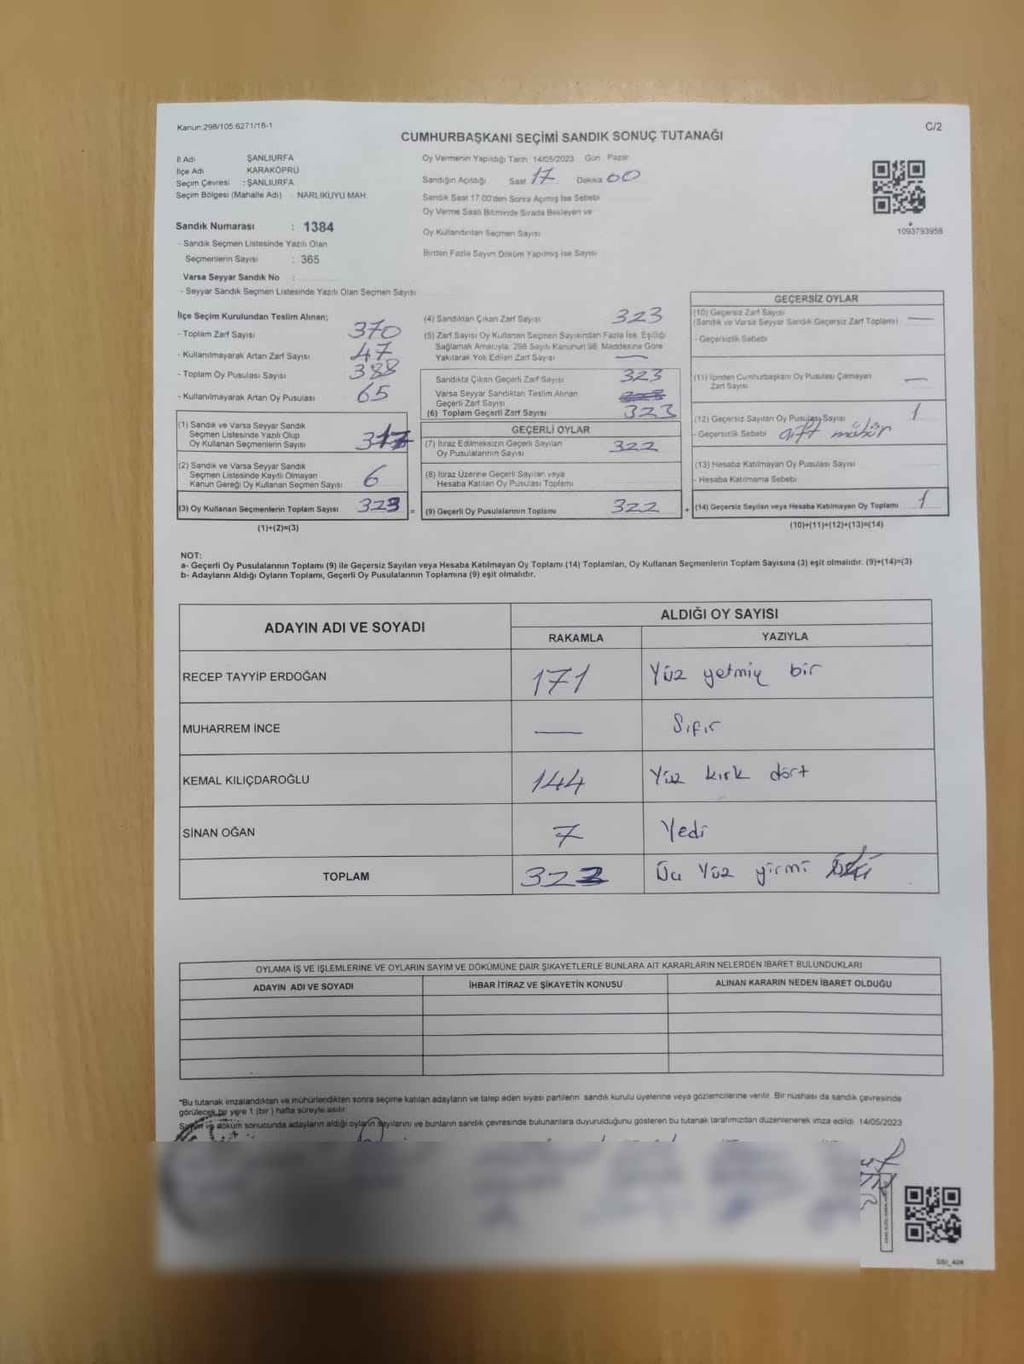 Kanun:298/105:6271/18-1
C/2
CUMHURBAŞKANI SEÇİMİ SANDIK SONUÇ TUTANAĞI
İl Adı ŞANLIURFA
İlçe Adı KARAKÖPRÜ
Seçim Çevresi : ŞANLIURFA
Seçim Bölgesi (Mahalle Adı) : NARLIKUYU MAH
Sandık Numarası : 1384
- Sandık Seçmen Listesinde Yazılı Olan
Seçmenlerin Sayısı : 365
Varsa Seyyar Sandık No :
- Seyyar Sandık Seçmen Listesinde Yazılı Olan Seçmen Sayısı
Oy Vermenin Yapıldığı Tarih 14/05/2023 Gün Pazar
Sandığın Açıldığı Saat 17 Dakika 00
Sandık Saat 17.00'den Sonra Açılmış İse Sebebi
Oy Verme Saati Bitiminde Sırada Bekleyen ve
Oy Kullandırılan Seçmen Sayısı
Birden Fazla Sayım Döküm Yapılmış İse Sayısı
1093793958
İlçe Seçim Kurulundan Teslim Alınan;
- Toplam Zarf Sayısı 370
- Kullanılmayarak Artan Zarf Sayısı 47
- Toplam Oy Pusulası Sayısı 388
- Kullanılmayarak Artan Oy Pusulası 65
(1) Sandık ve Varsa Seyyar Sandık
Seçmen Listesinde Yazılı Olup
Oy Kullanan Seçmenlerin Sayısı 317
(2) Sandık ve Varsa Seyyar Sandık
Seçmen Listesinde Kayıtlı Olmayan
Kanun Gereği Oy Kullanan Seçmen Sayısı 6
(3) Oy Kullanan Seçmenlerin Toplam Sayısı 323 =
(1)+(2)=(3)
(4) Sandıktan Çıkan Zarf Sayısı 323
(5) Zarf Sayısı Oy Kullanan Seçmen Sayısından Fazla İse, Eşitliği
Sağlamak Amacıyla, 298 Sayılı Kanunun 98. Maddesine Göre
Yakılarak Yok Edilen Zarf Sayısı —
Sandıkta Çıkan Geçerli Zarf Sayısı 323
Varsa Seyyar Sandıktan Teslim Alınan
Geçerli Zarf Sayısı
(6) Toplam Geçerli Zarf Sayısı 323
GEÇERLİ OYLAR
(7) İtiraz Edilmeksizin Geçerli Sayılan
Oy Pusulalarının Sayısı 322
(8) İtiraz Üzerine Geçerli Sayılan veya
Hesaba Katılan Oy Pusulası Toplamı
(9) Geçerli Oy Pusulalarının Toplamı 322 +
GEÇERSİZ OYLAR
(10) Geçersiz Zarf Sayısı
(Sandık ve Varsa Seyyar Sandık Geçersiz Zarf Toplamı) —
- Geçersizlik Sebebi
(11) İçinden Cumhurbaşkanı Oy Pusulası Çıkmayan
Zarf Sayısı —
(12) Geçersiz Sayılan Oy Pusulası Sayısı 1
- Geçersizlik Sebebi çift mühür
(13) Hesaba Katılmayan Oy Pusulası Sayısı
- Hesaba Katılmama Sebebi
(14) Geçersiz Sayılan veya Hesaba Katılmayan Oy Toplamı 1
(10)+(11)+(12)+(13)=(14)
NOT:
a- Geçerli Oy Pusulalarının Toplamı (9) ile Geçersiz Sayılan veya Hesaba Katılmayan Oy Toplamı (14) Toplamları, Oy Kullanan Seçmenlerin Toplam Sayısına (3) eşit olmalıdır. (9)+(14)=(3)
b- Adayların Aldığı Oyların Toplamı, Geçerli Oy Pusulalarının Toplamına (9) eşit olmalıdır.
ADAYIN ADI VE SOYADI
ALDIĞI OY SAYISI
RAKAMLA YAZIYLA
RECEP TAYYİP ERDOĞAN 171 Yüz yetmiş bir
MUHARREM İNCE — Sıfır
KEMAL KILIÇDAROĞLU 144 Yüz kırk dört
SİNAN OĞAN 7 Yedi
TOPLAM 322 Üç Yüz yirmi iki
OYLAMA İŞ VE İŞLEMLERİNE VE OYLARIN SAYIM VE DÖKÜMÜNE DAİR ŞİKAYETLERLE BUNLARA AİT KARARLARIN NELERDEN İBARET BULUNDUKLARI
ADAYIN ADI VE SOYADI İHBAR İTİRAZ VE ŞİKAYETİN KONUSU ALINAN KARARIN NEDEN İBARET OLDUĞU
"Bu tutanak imzalandıktan ve mühürlendikten sonra seçime katılan adayların ve talep eden siyasi partilerin sandık kurulu üyelerine veya gözlemcilerine verilir. Bir nüshası da sandık çevresinde
görülecek bir yere 1 (bir) hafta süreyle asılır.
Sayım ve döküm sonucunda adayların aldığı oyların sayılarını ve bunların sandık çevresinde bulunanlara duyurulduğunu gösteren bu tutanak tarafımızdan düzenlenerek imza edildi. 14/05/2023